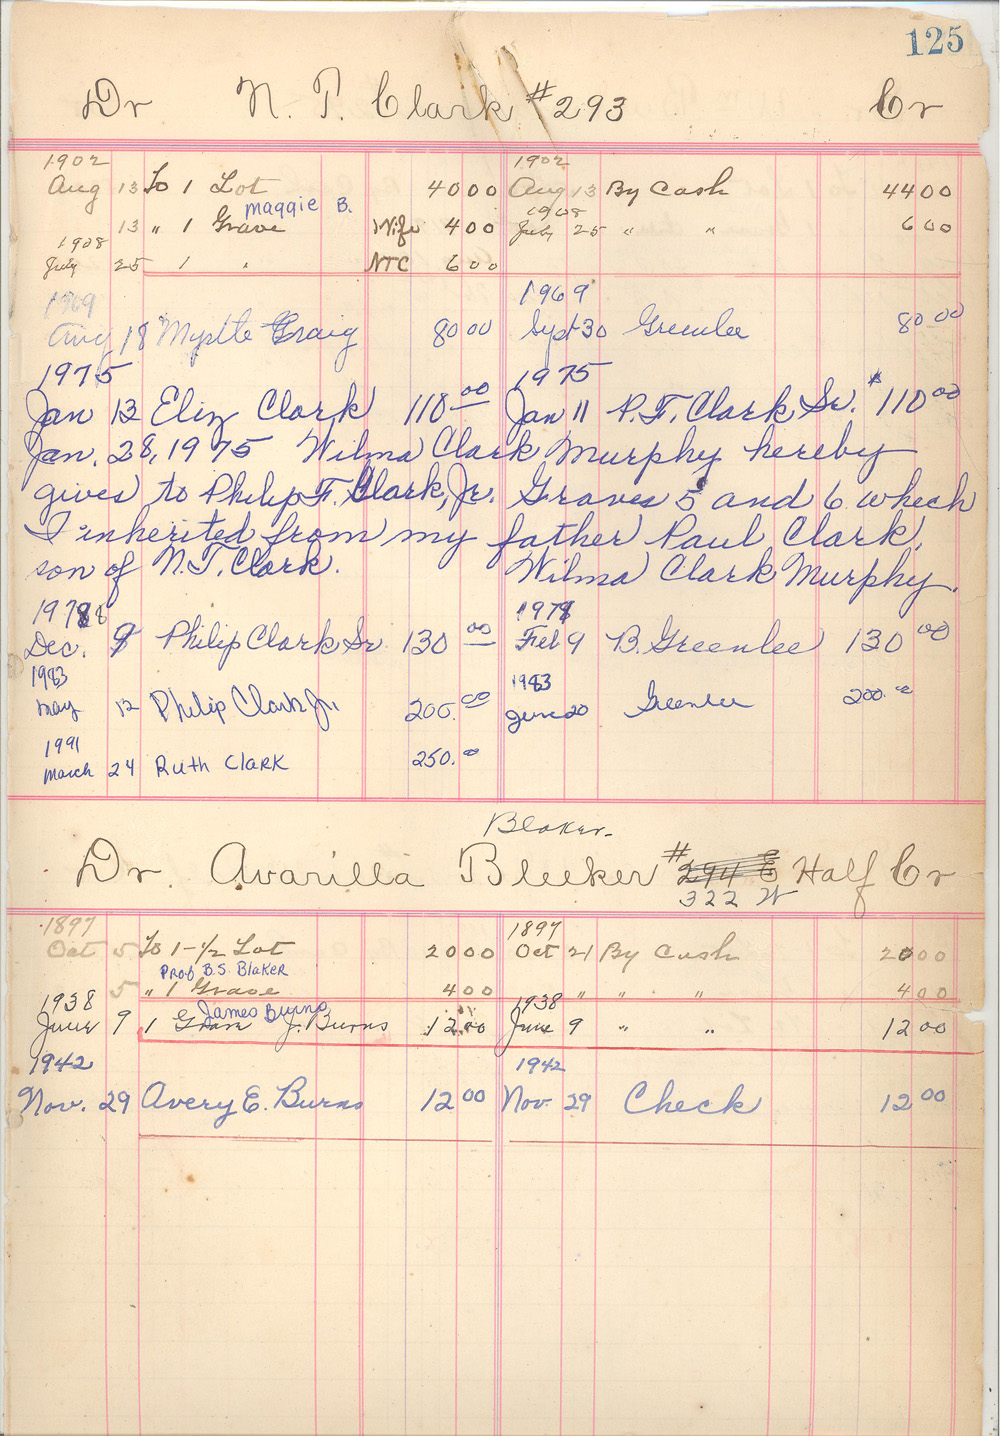 125
Dr N. T. Clark #293 Cr
1902 1902
Aug 13 To 1 Lot 40 00 Aug 13 By Cash 44 00
Maggie B.
13 " 1 Grave Wife 4 00
1908
July 25 " " 6 00
1908
July 25 1 " NTC 6 00
1969 1969
Aug 18 Myrtle Craig 80 00 Sept 30 Greenlee 80 00
1975 1975
Jan 13 Eliz Clark 110 00 Jan 11 P. F. Clark Sr. 110 00
Jan. 28, 1975 Wilma Clark Murphy hereby
gives to Philip F. Clark, Jr. Graves 5 and 6 which
I inherited from my father Paul Clark,
son of N. T. Clark. Wilma Clark Murphy.
1978
Dec. 9 Philip Clark Sr 130 00 Feb 9 B. Greenlee 130 00
1983 1983
May 12 Philip Clark Jr. 200. 00 June 20 Greenlee 200. 00
1991
March 24 Ruth Clark 250. 00
Blaker.
Dr. Avarilla Bleeker #294 E Half Cr
322 W
1897 1897
Oct 5 To 1-1/2 Lot 20 00 Oct 21 By Cash 20 00
Prob B.S. Blaker
5 " 1 Grave 4 00 " " " 4 00
1938 James Burns 1938
June 9 1 Grave J. Burns 12 00 June 9 " " 12 00
1942 1942
Nov. 29 Avery E. Burns 12 00 Nov. 29 Check 12 00